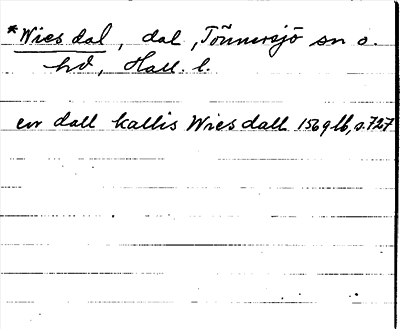 *Wies dal, dal, Tönnersjö sn o.
hd, Hall. l.
en dall kallis Wies dall 1569 lb, s. 727